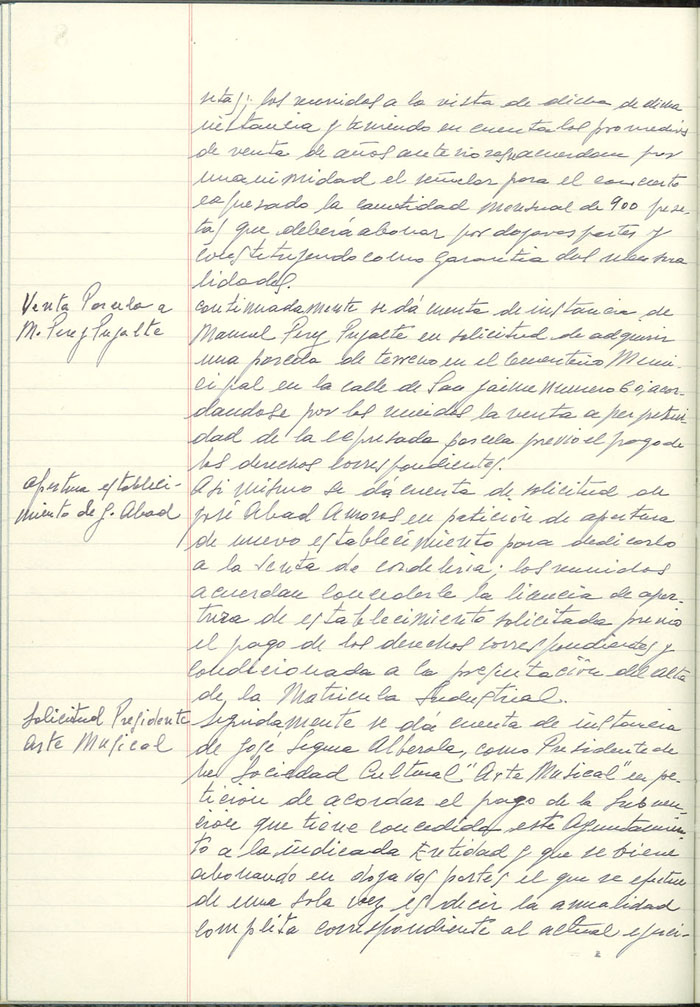 setas; los reunidos a la vista de dicha de dicha
instancia y teniendo en cuenta los promedios
de venta de años anteriores, acuerdan por
unanimidad el señalar para el concierto
expresado la cantidad mensual de 900 pese-
tas que deberá abonar por dozavas partes y
constituyendo como garantía dos mensua
lidades.
Venta Parcela a
M. Perez Pujalte
Continuadamente se dá cuenta de instancia de
Manuel Perez Pujalte en solicitud de adquirir
una parcela de terreno en el Cementerio Muni-
cipal en la calle de San Jaime numero 6 acor-
dandose por los reunidos la venta a perpetui-
dad de la expresada parcela previo el pago de
los derechos correspondientes.
Apertura estableci-
miento de J. Abad
Asi mismo se dá cuenta de solicitud de
José Abad Amoros en petición de apertura
de nuevo establecimiento para dedicarlo
a la venta de cordeleria; los reunidos
acuerdan concederle la licencia de aper-
tura de establecimiento solicitada previo
el pago de los derechos correspondientes y
condicionada a la presentación del alta
de la Matricula Industrial.
Solicitud Presidente
Arte Musical
Seguidamente se dá cuenta de instancia
de José Segura Alberola, como Presidente de
la Sociedad Cultural "Arte Musical" en pe-
tición de acordar el pago de la Subven-
ción que tiene concedida este Ayuntamien-
to a la indicada Entidad y que se viene
abonando en dozavas partes el que se efectue
de una sola vez es decir la anualidad
completa correspondiente al actual ejerci-